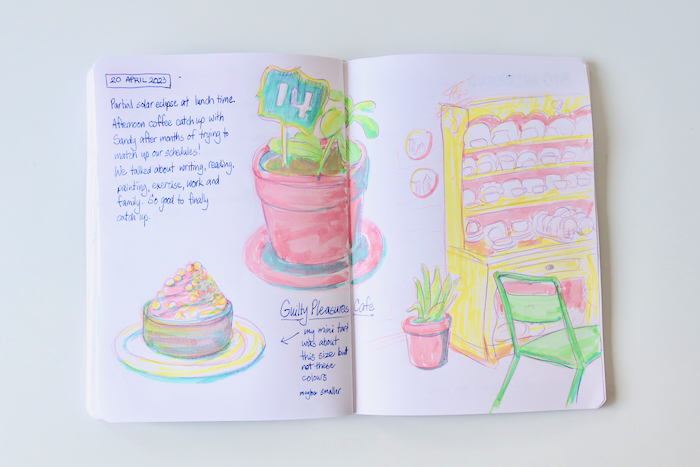 20 APRIL 2023
Partial solar eclipse at lunch time.
Afternoon coffee catch up with
Sandy after months of trying to
match up our schedules!
We talked about writing, reading,
painting, exercise, work and
family. So good to finally
catch up.
14
Guilty Pleasures Cafe
my mini tart
was about
this size but
not these
colours
maybe smaller